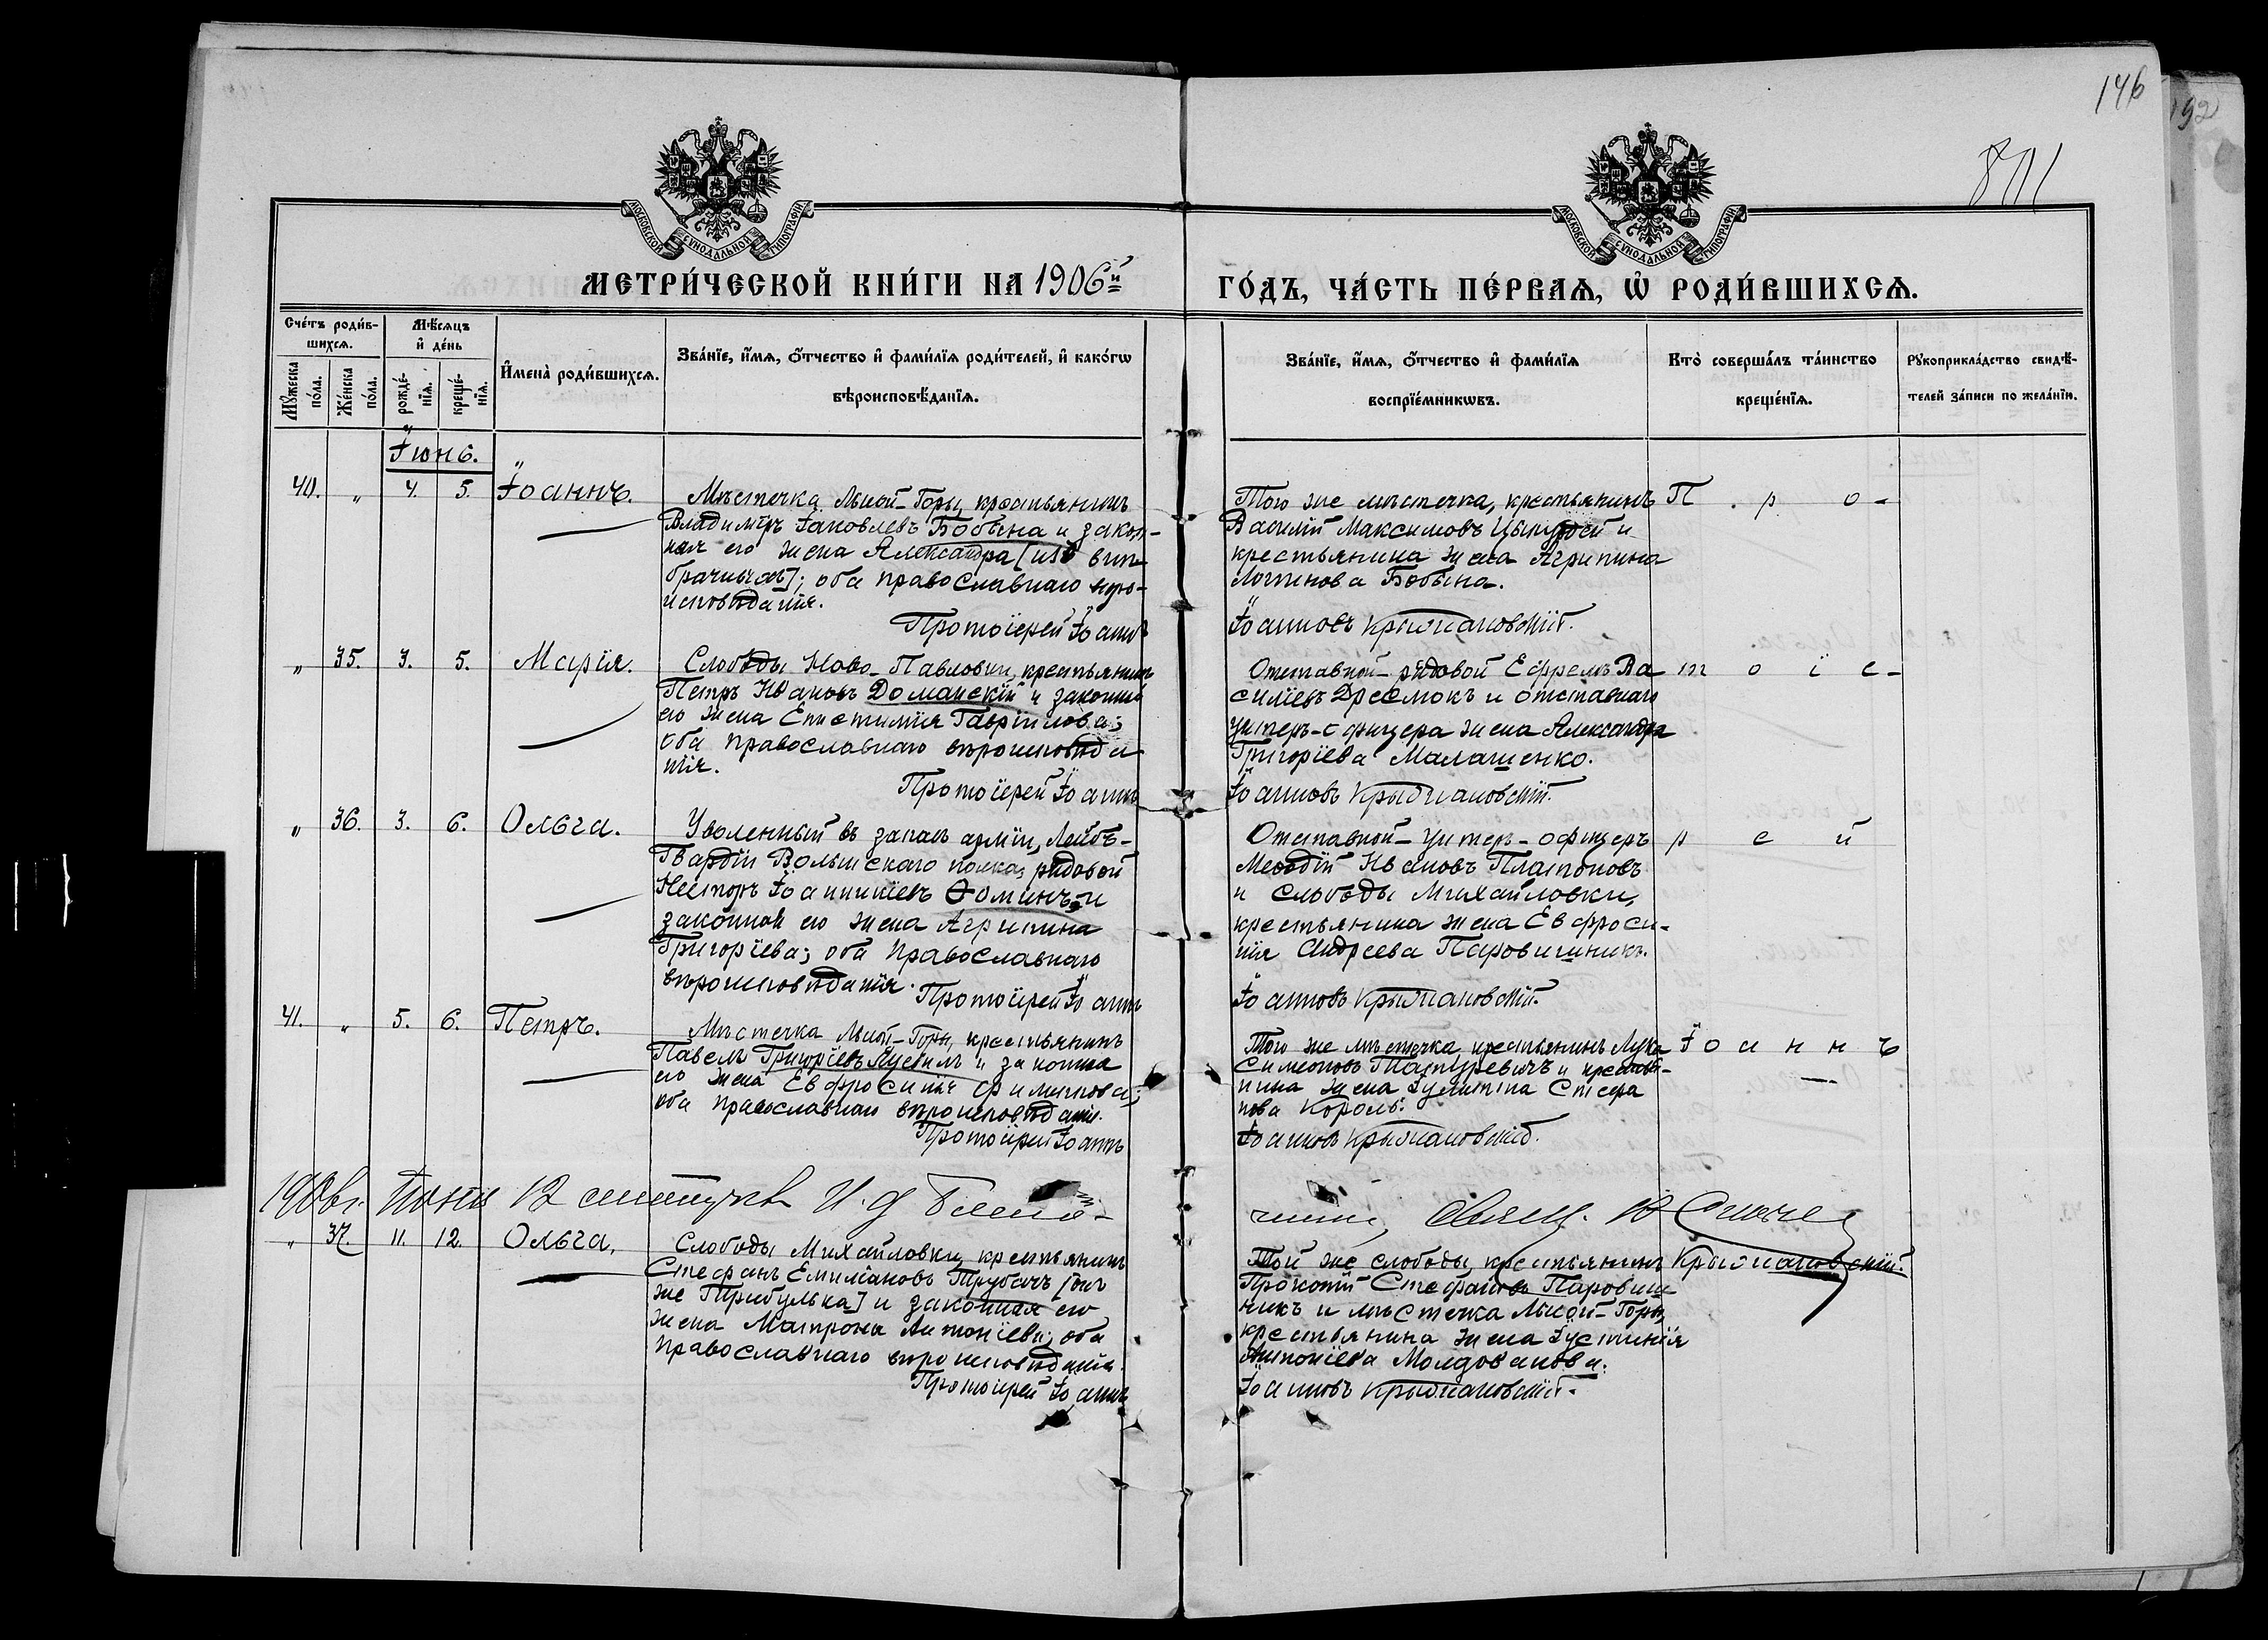 146
192
811
МОСКОВСКОЙ СѴНОДАЛЬНОЙ ТИПОГРАФІИ
МОСКОВСКОЙ СѴНОДАЛЬНОЙ ТИПОГРАФІИ
МЕТРИ́ЧЕСКОЙ КНИ́ГИ НА 1906й
ГО́ДЪ, ЧА́СТЬ ПЕ́РВАѦ, Ѡ҆ РОДИ́ВШИХСѦ.
Сче́тъ роди́в-
шихсѧ.
Мꙋ́жеска
по́ла.
Же́нска
по́ла.
Мѣ́сѧцъ
и҆ де́нь
рожде́-
нїѧ.
креще́-
нїѧ.
И҆мена̀ роди́вшихсѧ.
Зва́нїе, и҆́мѧ, ѻ҆́тчество и҆ фами́лїѧ роди́телей, и҆ како́гѡ
вѣроисповѣ́данїѧ.
Зва́нїе, и҆́мѧ, ѻ҆́тчество и҆ фами́лїѧ
воспрїе́мникѡвъ.
Кто̀ соверша́лъ та́инство
креще́нїѧ.
Рꙋкоприкла́дство свидѣ́-
телей за́писи по жела́нїю.
Іюнь.
40. " 4. 5. Іоаннъ.
Мѣстечка Лысой-Горы, крестьянинъ
Владиміръ Іаковлевъ Бобына и закон-
ная его жена Александра [изъ внѣ-
брачныхъ]; оба православнаго вѣро-
исповѣданія.
Протоіерей Іоаннъ
Того же мѣстечка, крестьянинъ
Василій Максимовъ и
крестьянина жена Агрипина
Логинова Бобына.
Іоанновъ Крыжановскій.
П . р о-
" 35. 3. 5. Марія.
Слободы Ново-Павловки, крестьянинъ
Петръ Ивановъ Доманскій и законная
его жена Епистимія Гавріилова;
оба православнаго вѣроисповѣда-
нія.
Протоіерей Іоаннъ
Отставной рядовой Ефремъ Ва-
силіевъ Дреемокъ и отставнаго
унтеръ-офицера жена Александра
Григоріева Малашенко.
Іоанновъ Крыжановскій.
т о і е-
" 36. 3. 6. Ольга.
Уволенный въ запасъ арміи, Лейбъ-
Гвардіи Волынскаго полка, рядовой
Несторъ Іоанникіевъ Ѳоминъ и
законная его жена Агрипина
Григоріева; оба православнаго
вѣроисповѣданія.
Протоіерей Іоаннъ
Отставной унтеръ-офицеръ
Меѳодій Ивановъ Платоновъ
и слободы Михайловки,
крестьянина жена Евфроси-
нія Андреева Паровишникъ.
Іоанновъ Крыжановскій.
р е й
41. " 5. 6. Петръ.
Мѣстечка Лысой-Горы, крестьянинъ
Павелъ Григоріевъ и законная
его жена Евфросинія Филиппова;
оба православнаго вѣроисповѣданія.
Протоіерей Іоаннъ
Того же мѣстечка крестьянинъ Лука
Симеоновъ и крестья-
нина жена Іулитта Стефа
нова Король.
Іоанновъ Крыжановскій.
Іоаннъ
1906 г. Іюня 12 И. д. Благо-
чинный, Свящ.
" 37. 11. 12. Ольга.
Слободы Михайловки, крестьянинъ
Стефанъ Емиліановъ Трубачъ [онъ
же Прибулька] и законная его
жена Матрона Антоніева; оба
православнаго вѣроисповѣданія.
Протоіерей Іоаннъ
Той же слободы, крестьянинъ
Прокопій Стефановъ Паровиш-
никъ и мѣстечка Лысой-Горы,
крестьянина жена Іустинія
Антоніева Молдованова.
Іоанновъ Крыжановскій.
Крыжановскій.